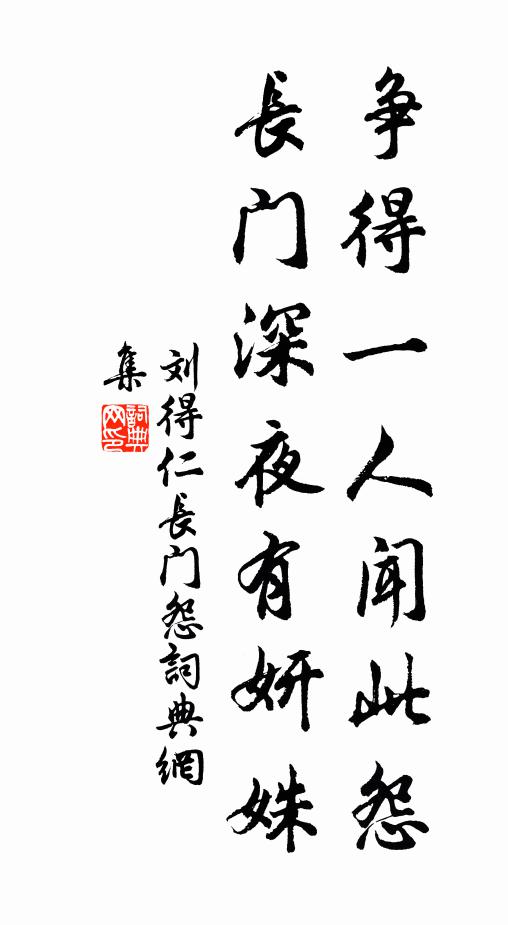 争得一人闻此怨
長门深夜有妍姝
刘得仁長门怨詞典網
集
詞典网印